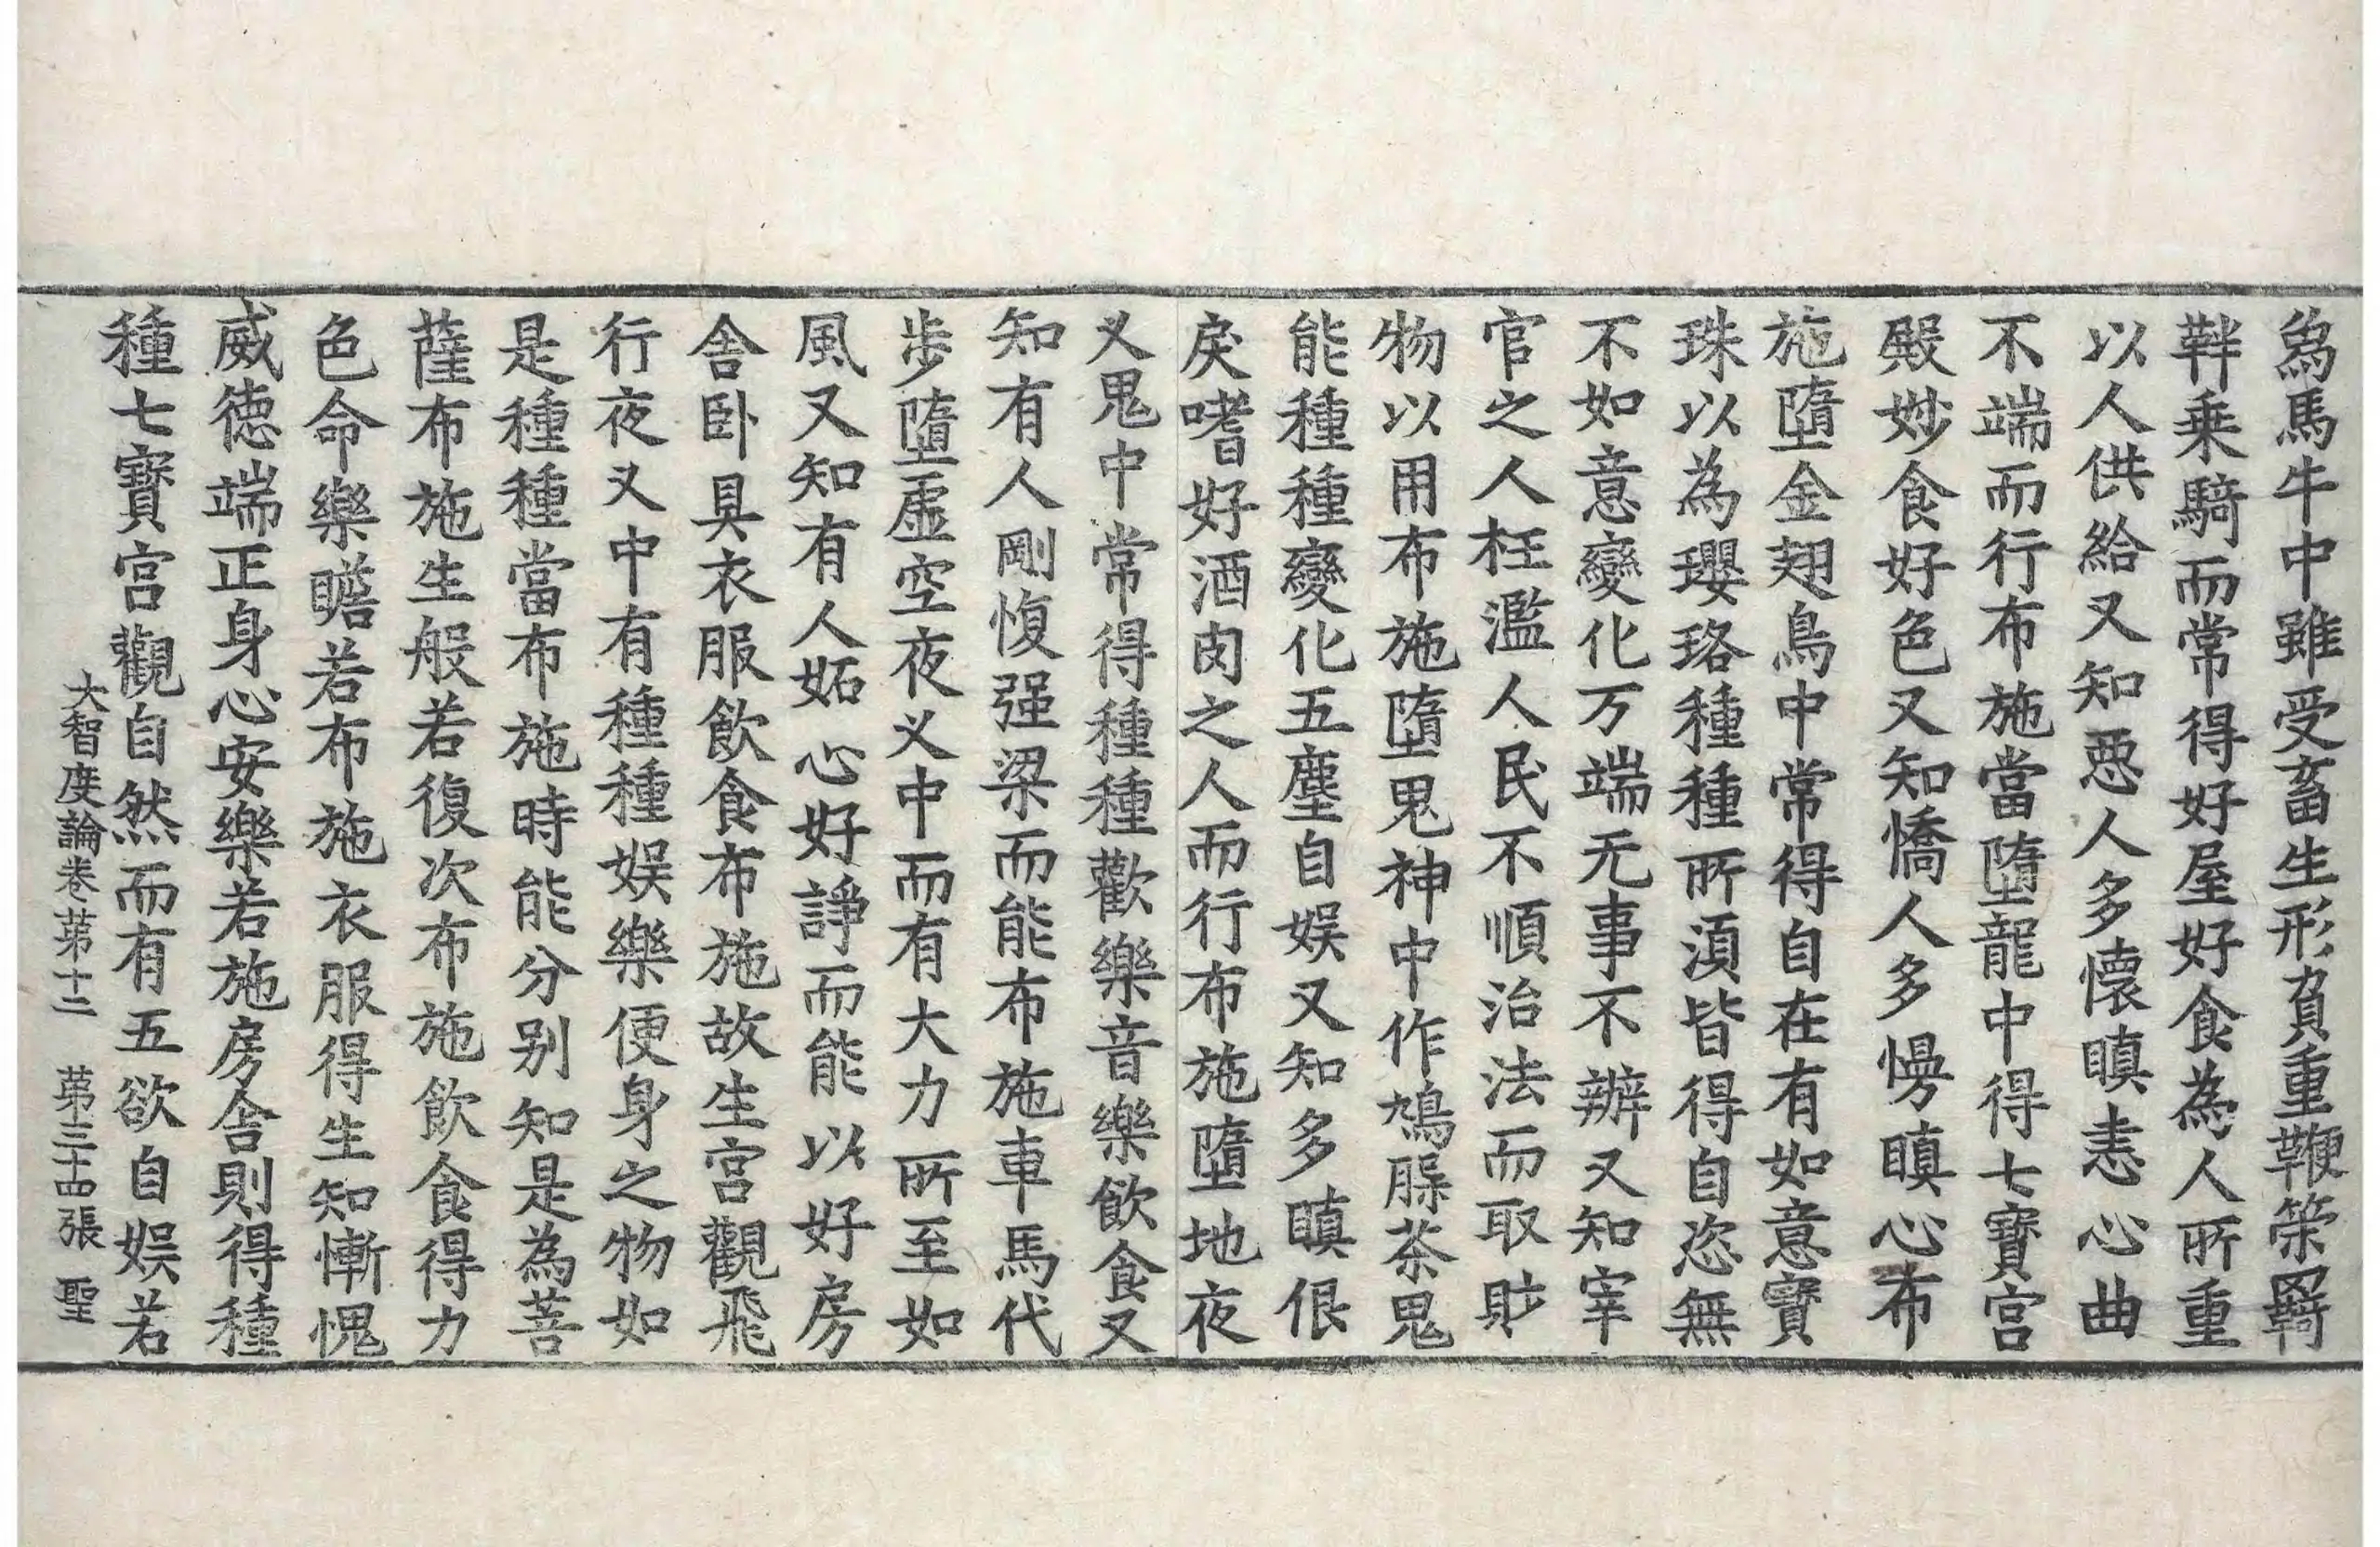 為馬牛中雖受畜生形負重鞭策羇
靽乗騎而常得好屋好食為人所重
以人供給又知惡人多懷瞋恚心曲
不端而行布施當墮龍中得七寶宫
殿妙食好色又知憍人多慢瞋心布
施墮金翅鳥中常得自在有如意寶
珠以為瓔珞種種所湏皆得自恣無
不如意變化万端无事不辦又知宰
官之人枉濫人民不順治法而取財
物以用布施墮鬼神中作鳩脲茶鬼
能種種變化五塵自娱又知多瞋佷
戾嗜好酒肉之人而行布施墮地夜
义鬼中常得種種歡樂音樂飲食又
知有人剛愎强梁而能布施車馬代
步墮虚空夜义中而有大力所至如
風又知有人妬心好諍而能以好房
舎卧具衣服飲食布施故生宫觀飛
行夜义中有種種娱樂便身之物如
是種種當布施時能分别知是為菩
薩布施生般若復次布施飲食得力
色命樂瞻若布施衣服得生知慚愧
威徳端正身心安樂若施房舎則得種
種七寶宫觀自然而有五欲自娱若
大智度論卷苐十二　苐三十四張　聖